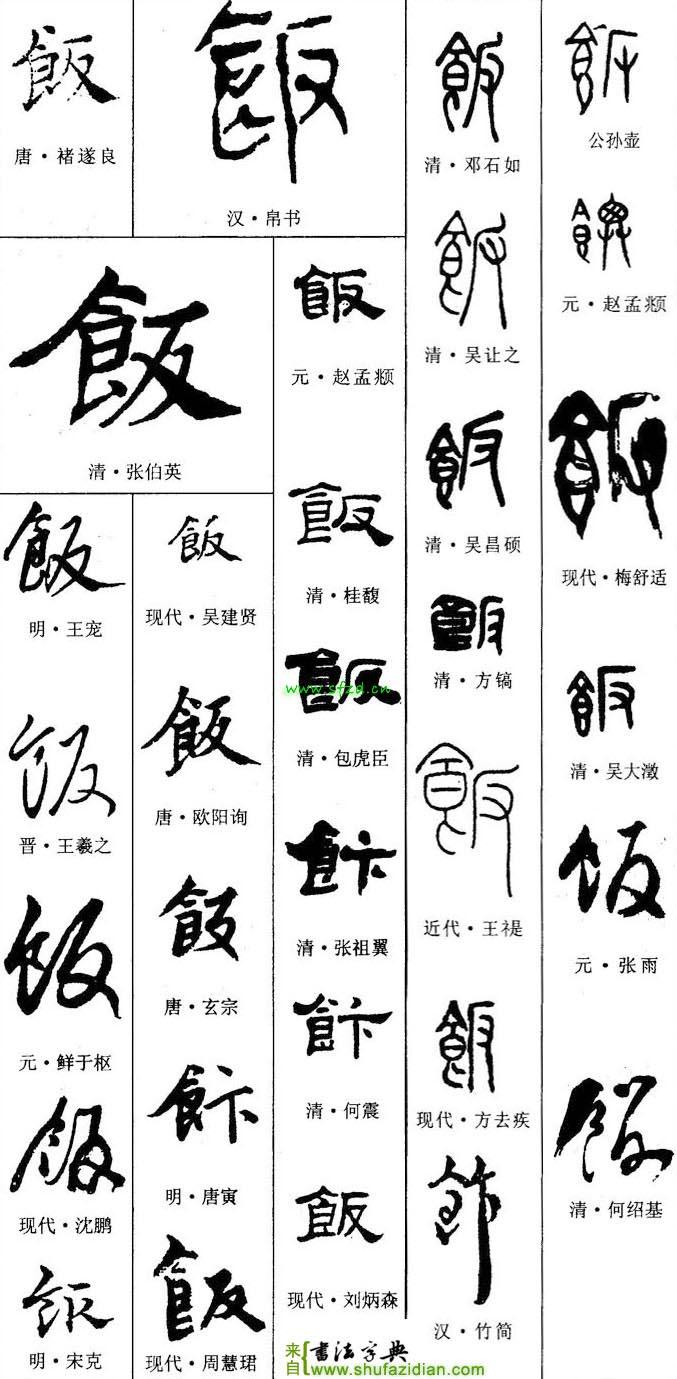 飯
唐·褚遂良
飯
汉·帛书
飯
清·张伯英
飯
明·王宠
飯
晋·王羲之
飯
元·鲜于枢
飯
现代·沈鹏
飯
明·宋克
飯
现代·吴建贤
飯
唐·欧阳询
飯
唐·玄宗
飰
明·唐寅
飯
现代·周慧珺
飯
元·赵孟頫
飯
清·桂馥
飯
清·包虎臣
www.sfzd.cn
飰
清·张祖翼
飰
清·何震
飯
现代·刘炳森
飯
清·邓石如
飯
清·吴让之
飯
清·吴昌硕
飯
清·方镐
飯
近代·王禔
飯
现代·方去疾
汉·竹简
飯
公孙壶
元·赵孟頫
飯
现代·梅舒适
飯
清·吴大澂
飯
元·张雨
飯
清·何绍基
来自
書法字典
www.shufazidian.com